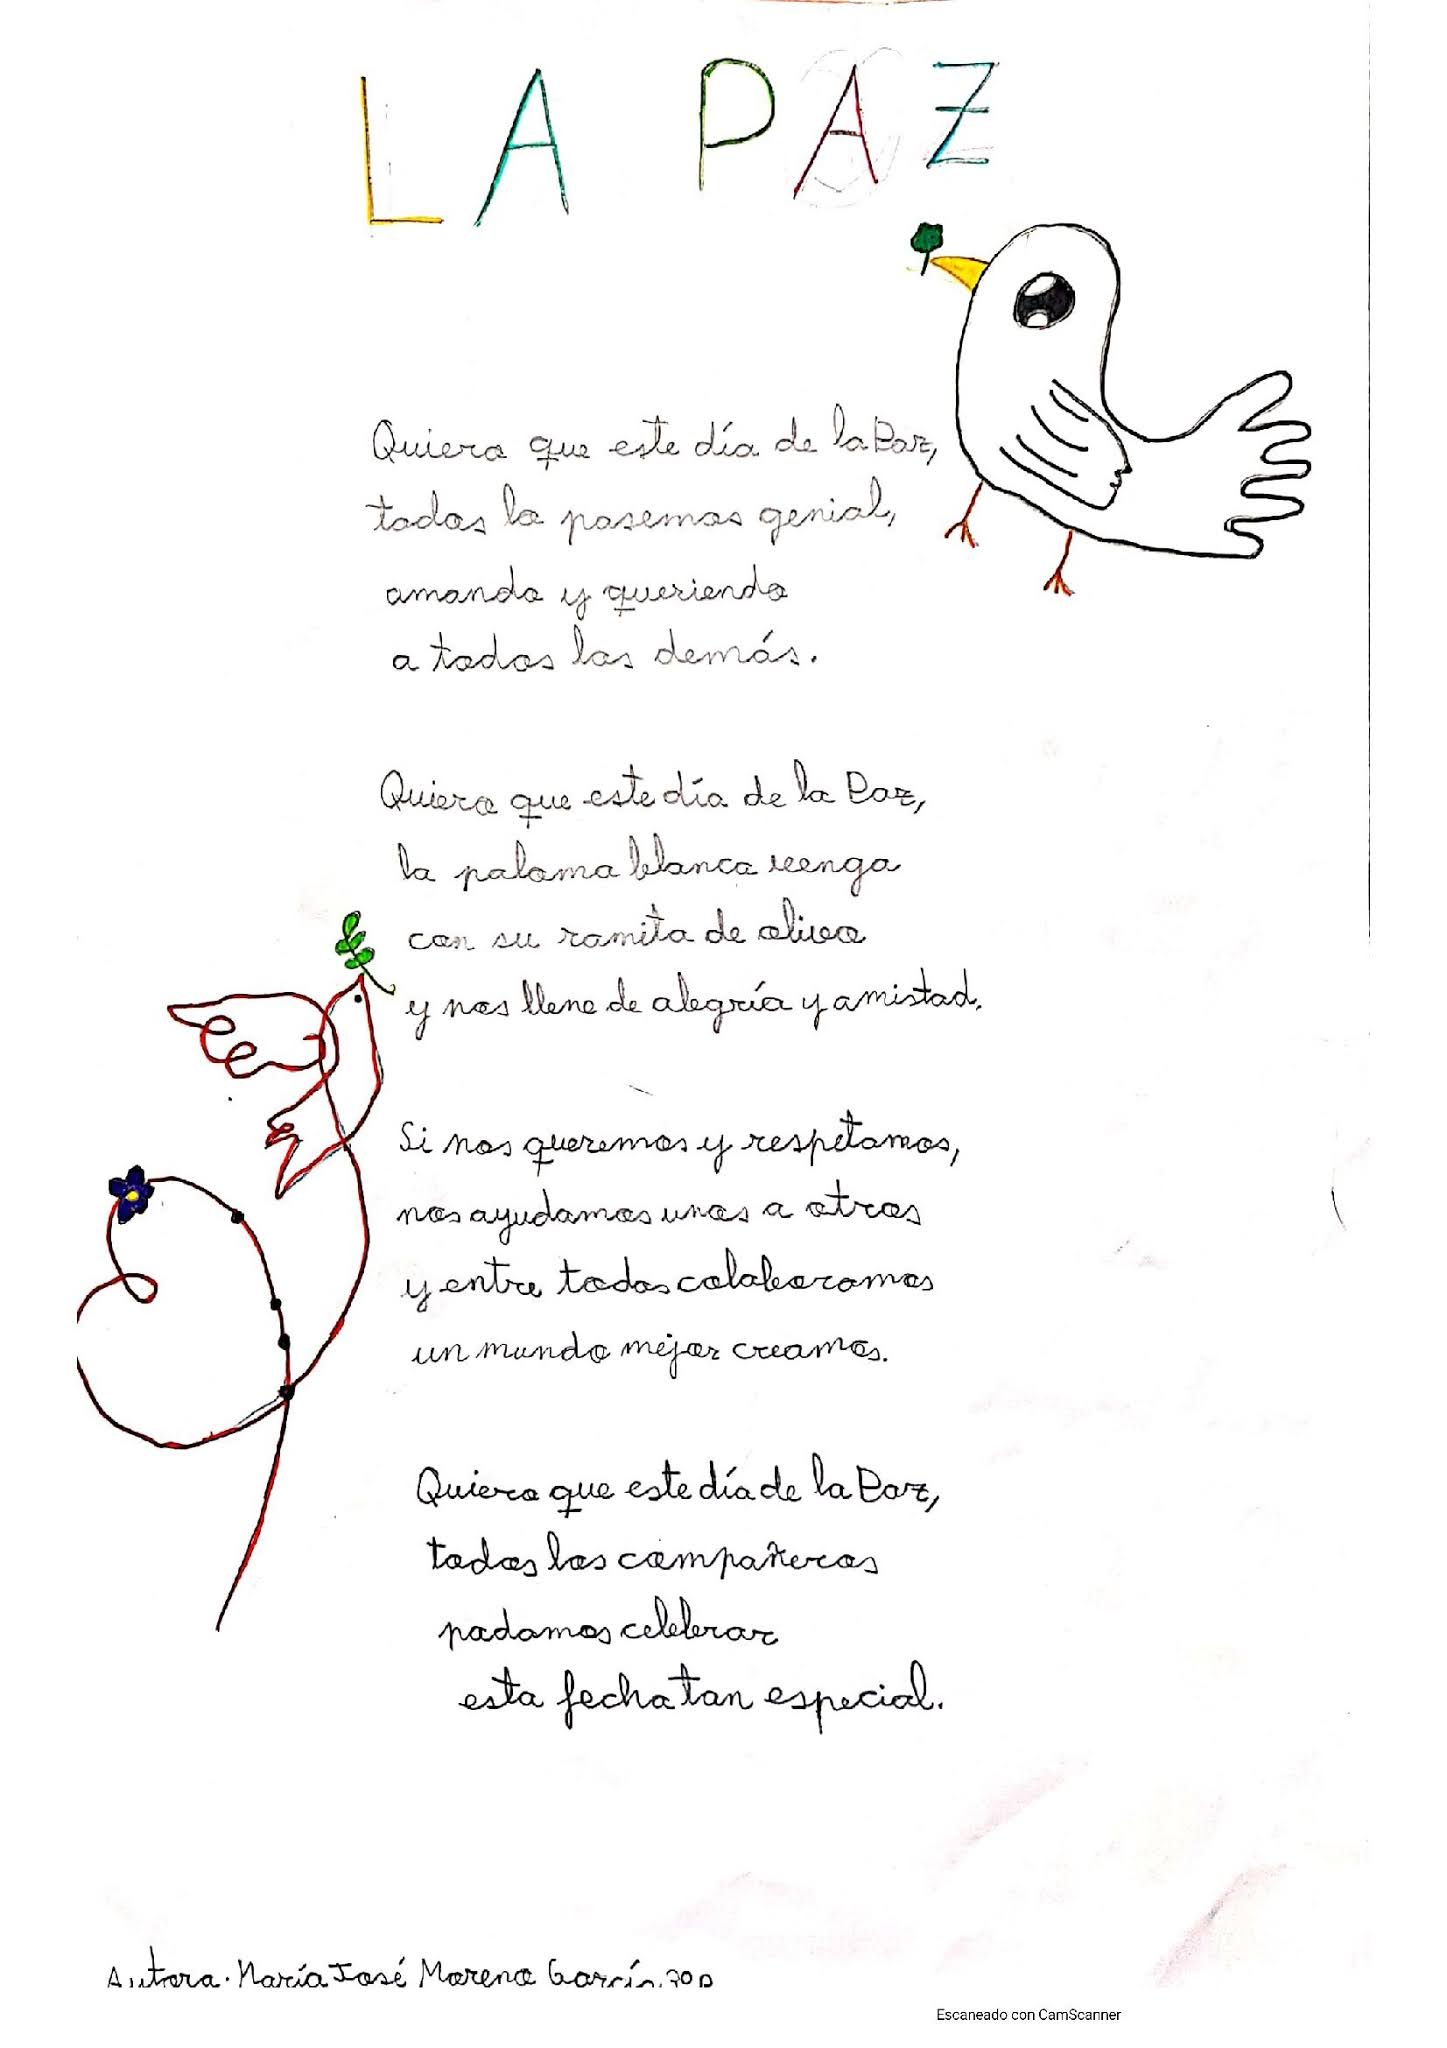 LA PAZ
Quiero que este día de la Paz,
todos lo pasemos genial,
amando y queriendo
a todos los demás.
Quiero que este día de la Paz,
la paloma blanca venga
con su ramita de olivo
y nos llene de alegría y amistad.
Si nos queremos y respetamos,
nos ayudamos unos a otros
y entre todos colaboramos
un mundo mejor creamos.
Quiero que este día de la Paz,
todos los compañeros
podamos celebrar
esta fecha tan especial.
Autora. María José Moreno García.
Escaneado con CamScanner